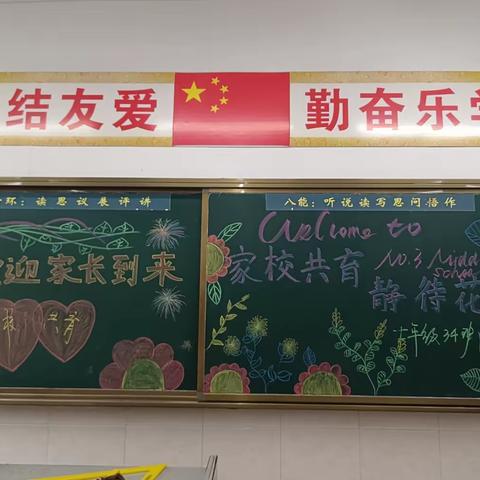 结友爱 勤奋乐学
环：读思议展评讲
八能：听说读写思问悟作
迎家长到来
共育
Welcome to
家校共育
NO.3 Middle
School
静待花
七年级34班